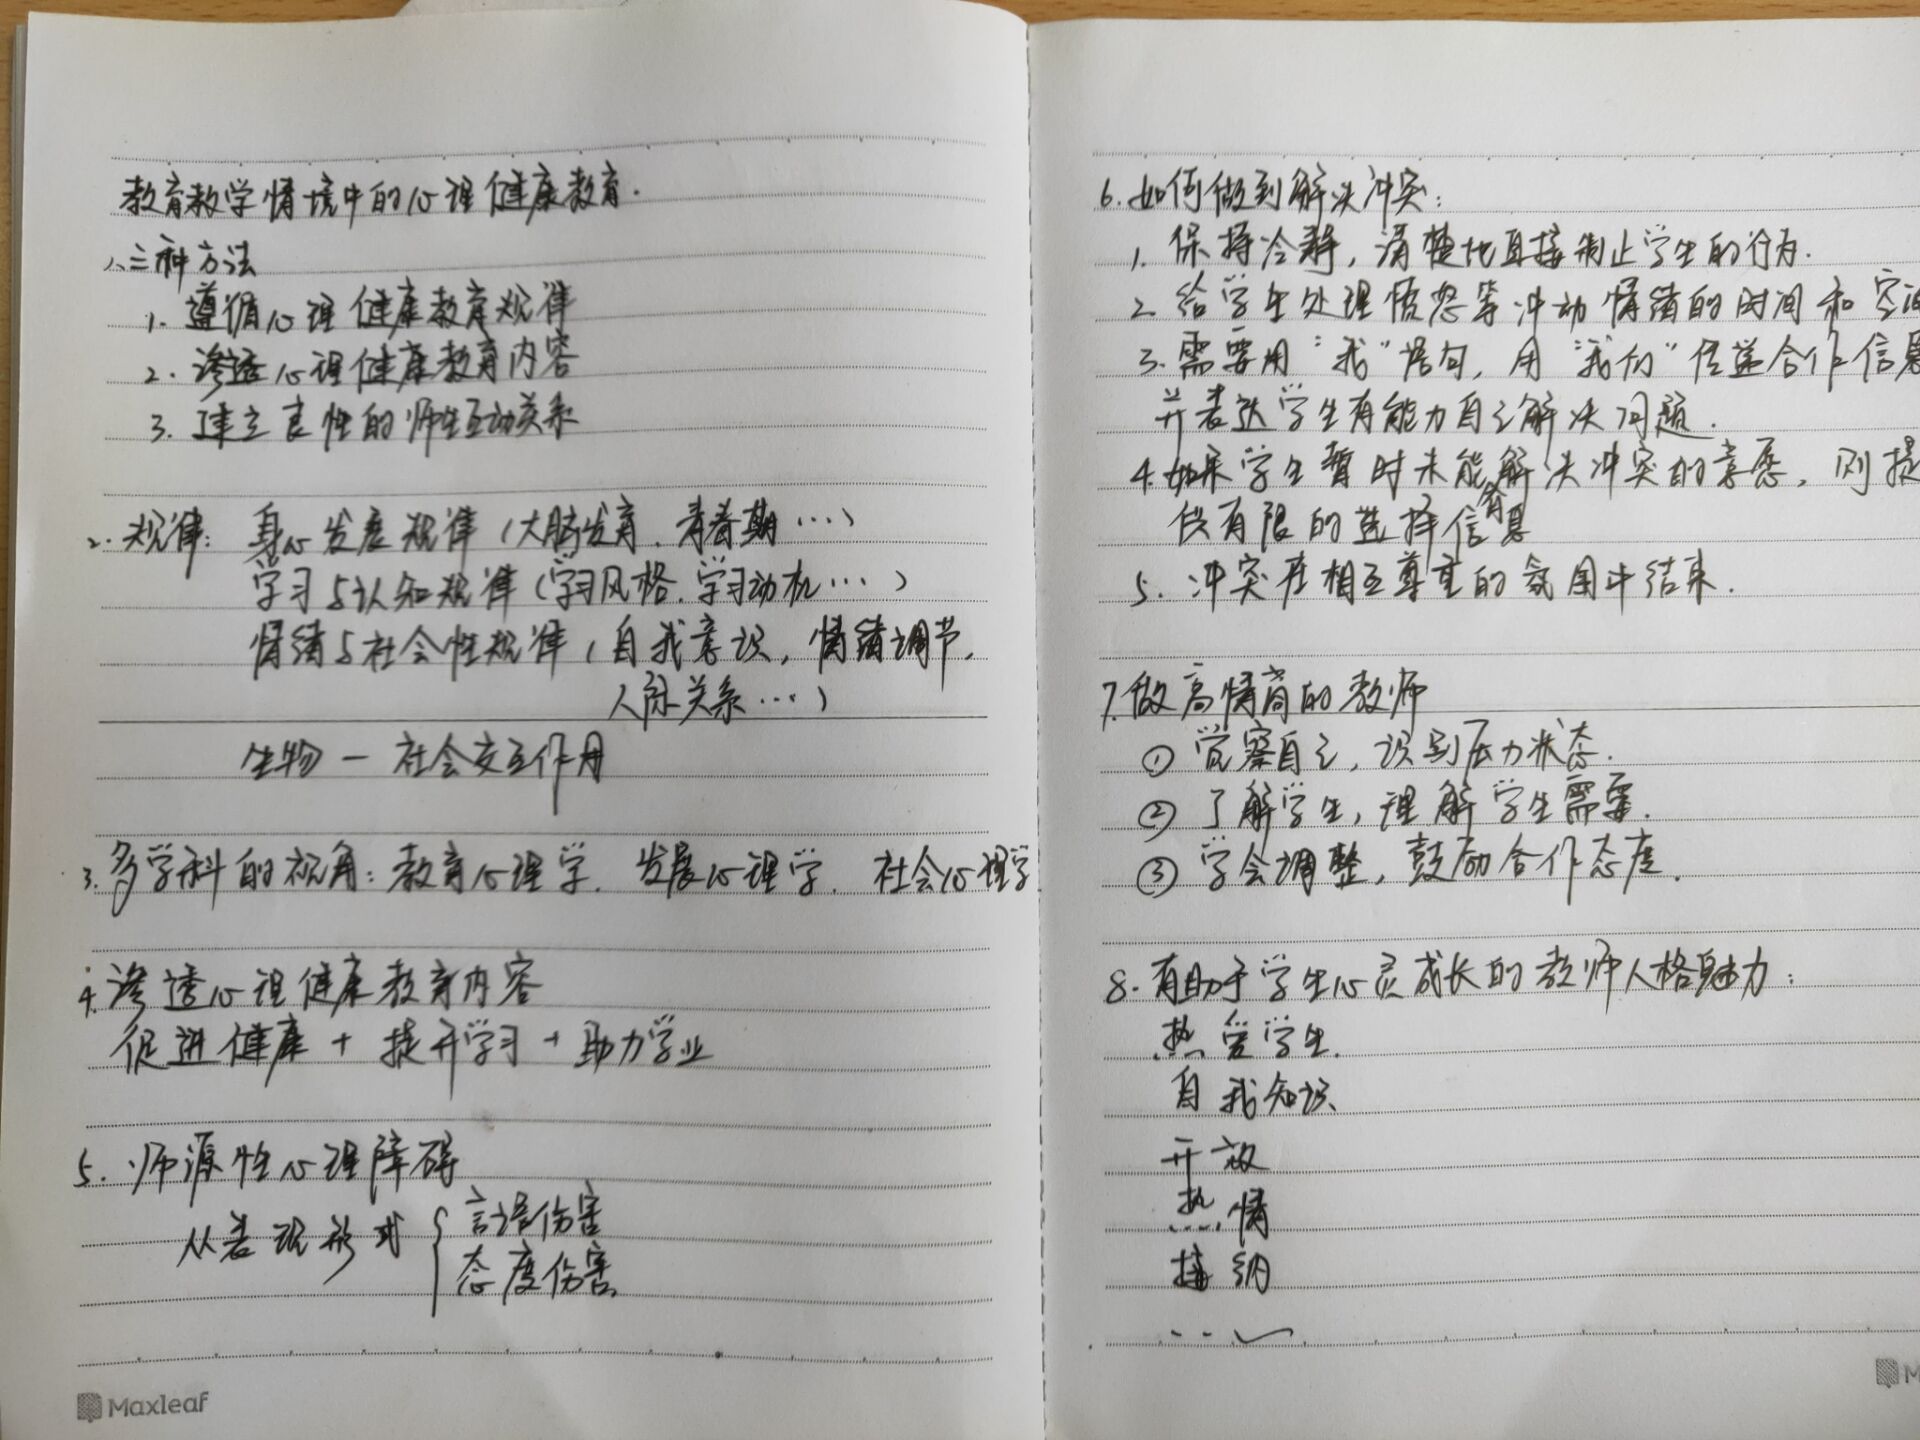 教育教学情境中的心理健康教育.
1、三种方法
1. 遵循心理健康教育规律
2. 渗透心理健康教育内容
3. 建立良性的师生互动关系
2. 规律: 身心发展规律(大脑发育、青春期…)
学习与认知规律(学习风格、学习动机…)
情绪与社会性规律(自我意识,情绪调节,
人际关系…)
生物—社会交互作用
3. 多学科的视角:教育心理学、发展心理学、社会心理学
4. 渗透心理健康教育内容
促进健康+提升学习+助力学业
5. 师源性心理障碍
从表现形式{言语伤害
态度伤害
Maxleaf
6. 如何做到解决冲突:
1. 保持冷静,清楚地直接制止学生的行为.
2. 给学生处理愤怒等冲动情绪的时间和空间
3. 需要用“我”语句,用“我们”传递合作信息
并表达学生有能力自己解决问题.
4. 如果学生暂时未能解决冲突的意愿,则提
供有限的选择信息
5. 冲突在相互尊重的氛围中结束.
7. 做高情商的教师
① 觉察自己,识别压力状态.
② 了解学生,理解学生需要.
③ 学会调整,鼓励合作态度.
8. 有助于学生心灵成长的教师人格魅力:
热爱学生.
自我知识
开放
热情
接纳